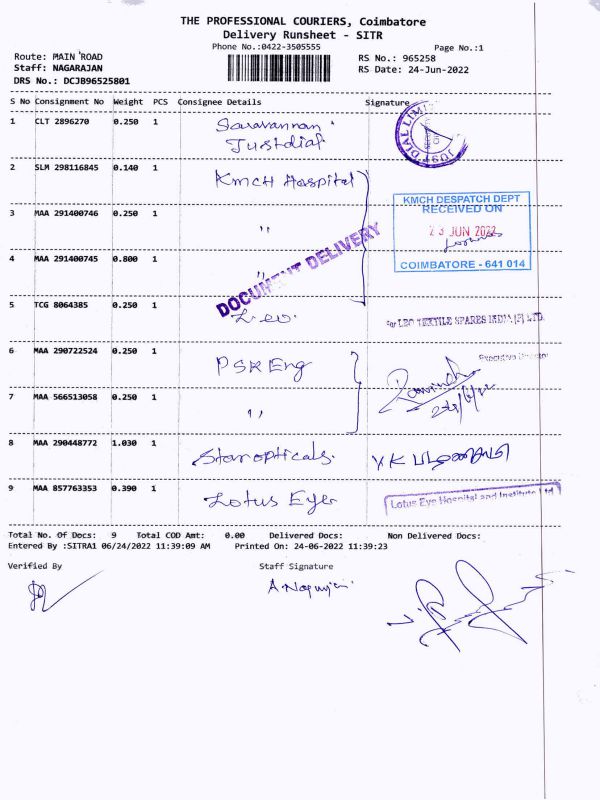 THE PROFESSIONAL COURIERS, Coimbatore
Delivery Runsheet - SITR
Phone No.:0422-3505555
Page No.:1
Route: MAIN ROAD
RS No.: 965258
Staff: NAGARAJAN
RS Date: 24-Jun-2022
DRS No.: DCJB96525801
S No Consignment No Weight PCS Consignee Details Signature
1 CLT 2896270 0.250 1 Saravannan
Justdial
JUST DIAL LIMITED
2 SLM 298116845 0.140 1 KMCH Hospital
KMCH DESPATCH DEPT
RECEIVED ON
23 JUN 2022
COIMBATORE - 641 014
3 MAA 291400746 0.250 1 "
4 MAA 291400745 0.800 1 "
DOCUMENT DELIVERY
5 TCG 8064385 0.250 1 Leo.
For LEO TEXTILE SPARES INDIA (P) LTD.
Executive Director
6 MAA 290722524 0.250 1 PSR Eng
7 MAA 566513058 0.250 1 "
8 MAA 290448772 1.030 1 Star opticals.
9 MAA 857763353 0.390 1 Lotus Eye
Lotus Eye Hospital and Institute Ltd
Total No. Of Docs: 9 Total COD Amt: 0.00 Delivered Docs: Non Delivered Docs:
Entered By :SITRA1 06/24/2022 11:39:09 AM Printed On: 24-06-2022 11:39:23
Verified By Staff Signature